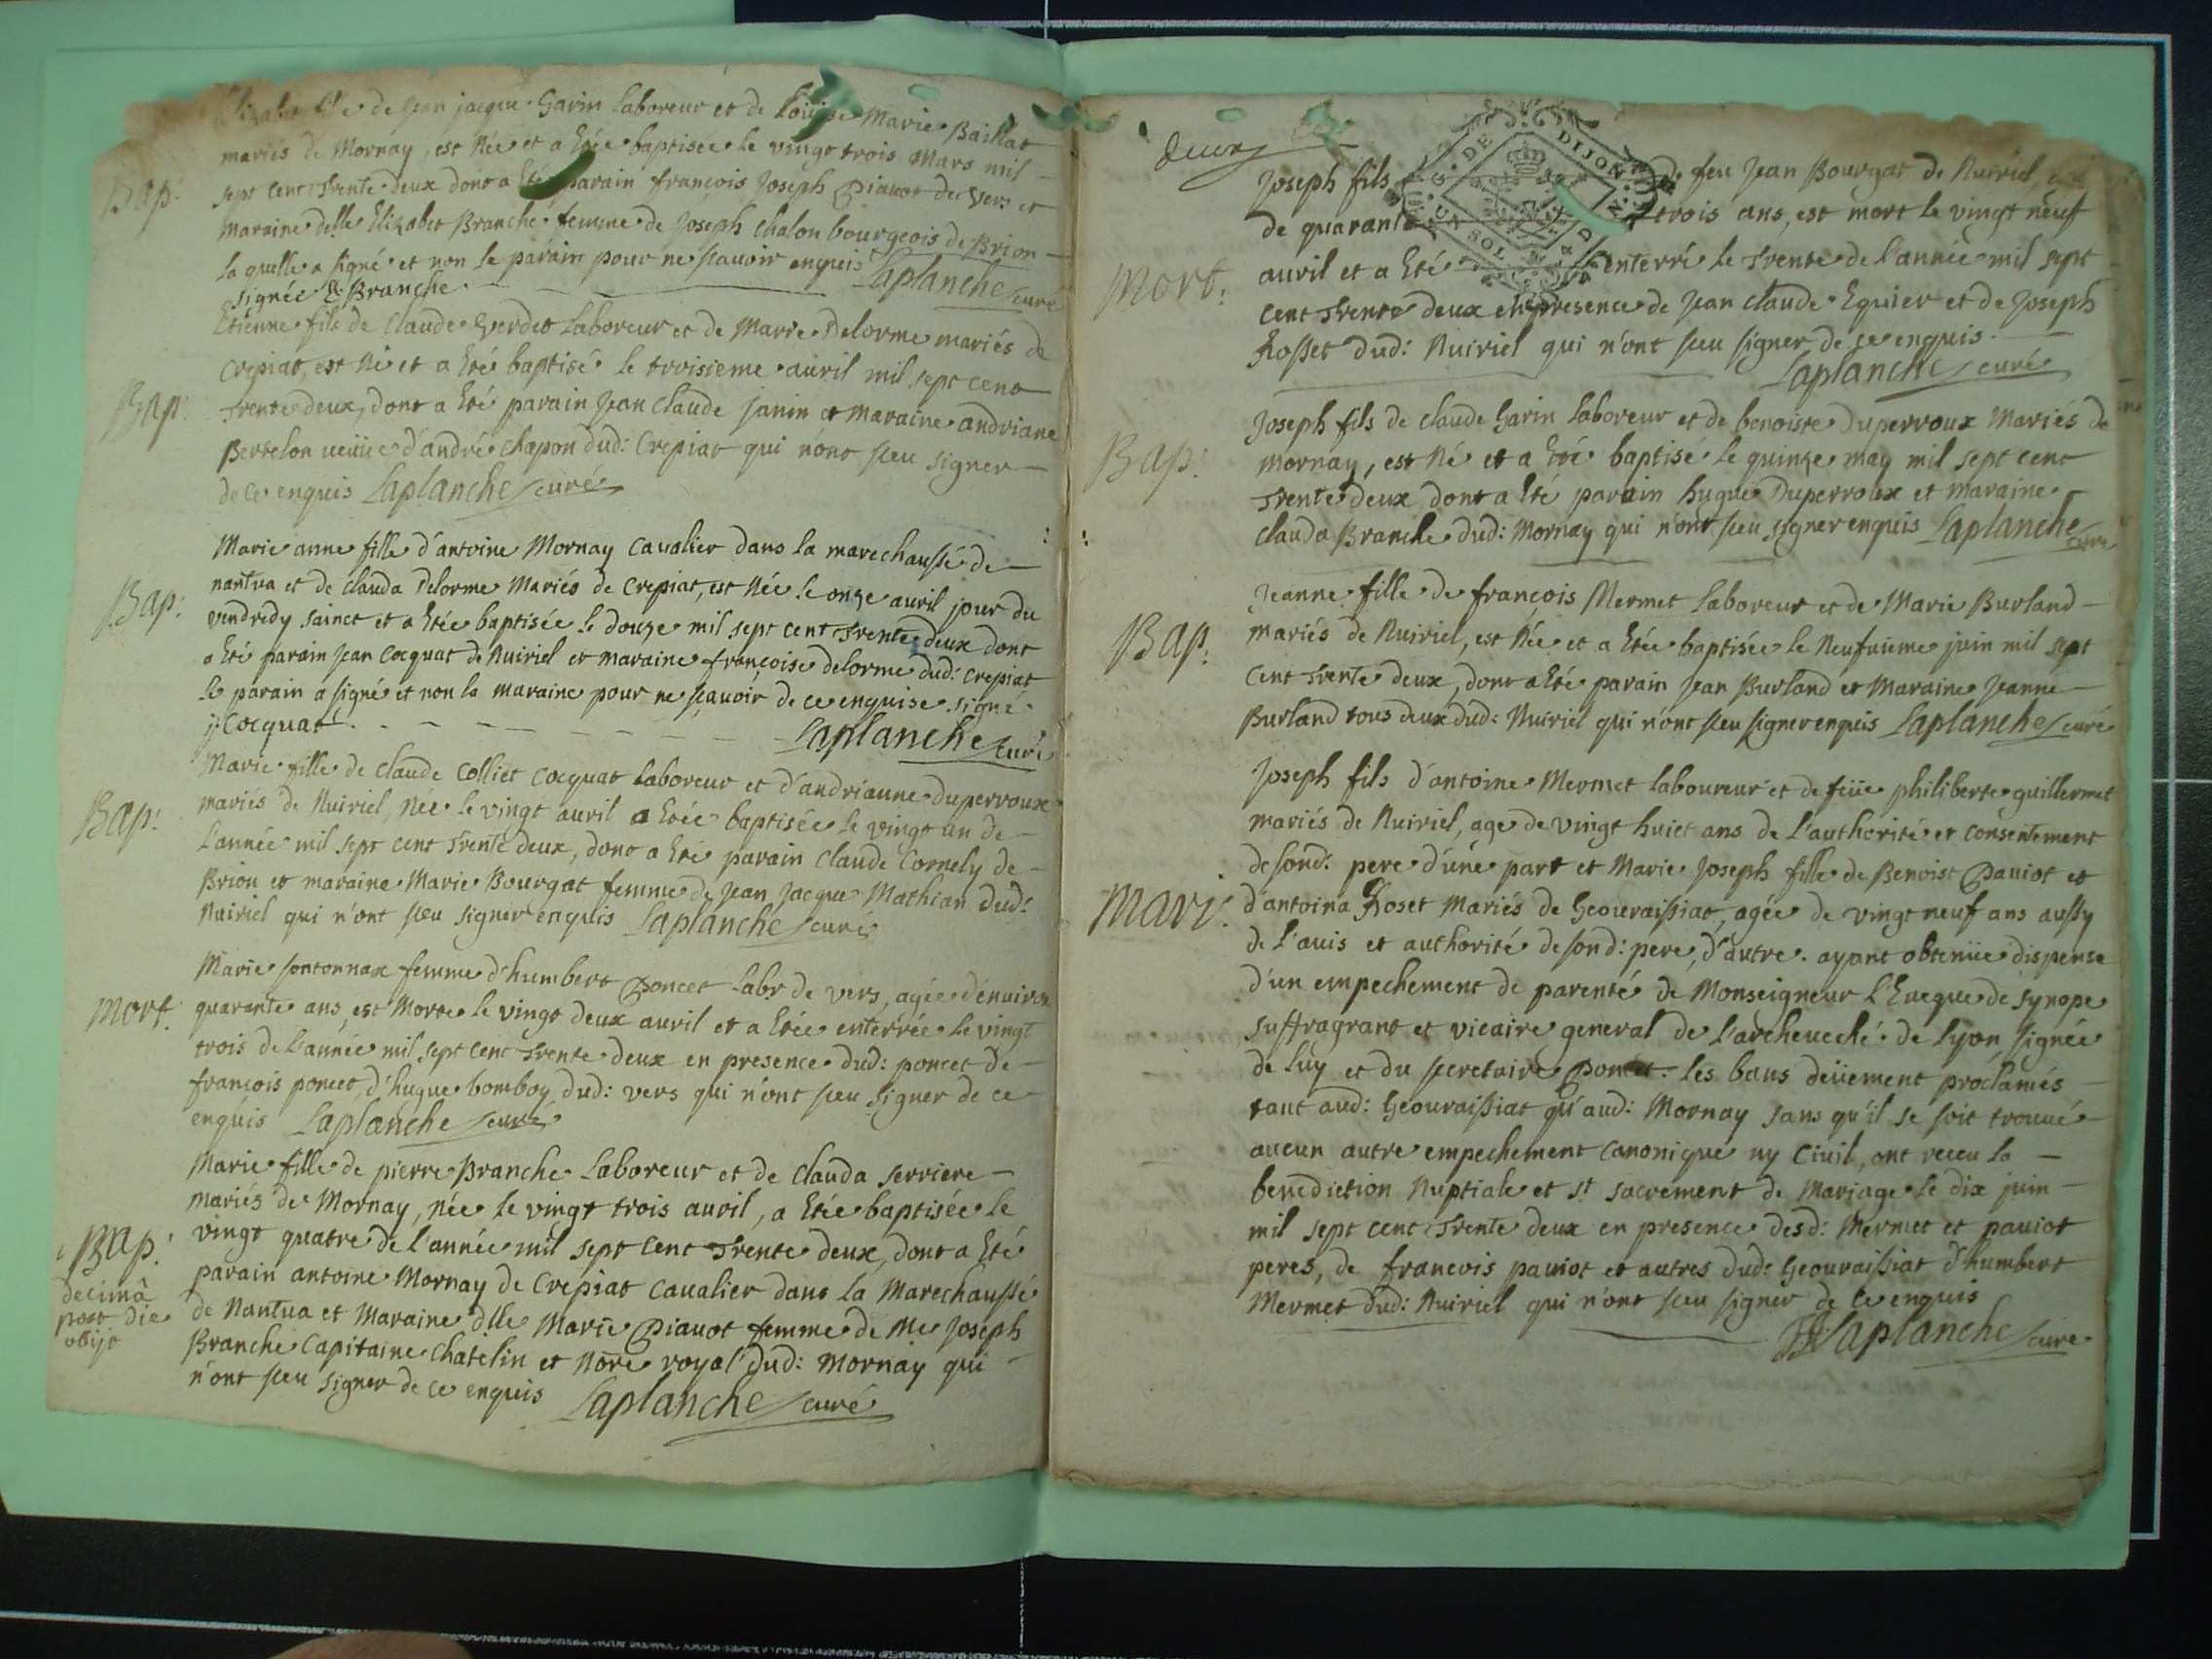 Elizabet fille de Jean jacque Garin laboreur et de Louise Marie Baillat
mariés de Mornay, est Née et a Etée baptisée le vingt trois Mars mil
Bap:
sept cent Trente deux dont a Eté parain françois Joseph Piavot de Vers et
Maraine delle Elizabet Branche femme de Joseph Chalon bourgeois de Brion
la quelle a signé et non le parain pour ne scauoir enquis Laplanche curé
signée E: Branche
Etienne fils de Claude Verdet Laboreur et de Marie Delorme mariés de
Crepiat, est Né et a Eté baptisé le troisieme auril mil sept cent
Bap:
Trente deux, dont a Eté parain Jean Claude janin et Maraine andriane
Bertelon ueüue d'andré Chapon dud: Crepiat qui n'ont sceu signer
de ce enquis Laplanche curé
Marie anne fille d'antoine Mornay Caualier dans la marechaussé de
Bap:
nantua et de Clauda Delorme Mariés de Crepiat, est Née le onze auril jour du
vendredy sainct et a Etée baptisée le douze mil sept cent Trente deux dont
a Eté parain Jean Cocquat de Nuiriel et maraine françoise delorme dud: Crepiat
le parain a signé et non la maraine pour ne sçauoir de ce enquise signé
j: Cocquat Laplanche curé
Marie fille de Claude Colliet Cocquat Laboreur et d'andrianne duperroux
Bap:
mariés de Nuiriel, Née le vingt auril a Etée baptisée le vingt un de
L'année mil sept cent Trente deux, dont a Eté parain Claude Cornely de
Brion et maraine Marie Bourgat femme de Jean Jacque Mathian dud:
Nuiriel qui n'ont sceu signer enquis Laplanche curé
Marie sontonnax femme d'humbert Poncet Labr de vers, agée d'enuiron
Mort:
quarante ans, est Morte le vingt deux auril et a Etée enterrée le vingt
trois de L'année mil sept cent Trente deux en presence dud: poncet de
françois poncet, d'hugue bomboy dud: vers qui n'ont sceu signer de ce
enquis Laplanche curé
Marie fille de pierre Branche Laboreur et de Clauda serriere
mariés de Mornay, née le vingt trois auril, a Etée baptisée le
Bap:
vingt quatre de l'année mil sept Cent Trente deux, dont a Eté
decimâ
post die
obijt
parain antoine Mornay de Crepiat Caualier dans la Marechaussé
de Nantua et Maraine dlle Marie Piauot femme de Me Joseph
Branche Capitaine Chatelin et Nore royal dud: Mornay qui
n'ont sceu signer de ce enquis Laplanche curé
deux
G. DE DIJON
SOL 4 D
Joseph fils de feu Jean Bourgat de Nuiriel,
de quarante trois ans, est mort le vingt neuf
Mort:
auril et a Eté enterré le Trente de l'année mil sept
cent Trente deux en presence de Jean Claude Equier et de Joseph
Rosset dud: Nuiriel qui n'ont sceu signer de ce enquis.
Laplanche curé
Joseph fils de Claude Garin laboreur et de benoiste Duperroux Mariés de
Bap:
mornay, est Né et a Eté baptisé le quinze may mil sept cent
Trente deux dont a Eté parain hugue Duperroux et maraine
Clauda Branche dud: Mornay qui n'ont sceu signer enquis Laplanche curé
Jeanne fille de françois Mermet Laboreur et de Marie Burland
Bap:
mariés de Nuiriel, est Née et a Etée baptisée le Neufuieme juin mil sept
Cent Trente deux, dont a Eté parain Jean Burland et Maraine Jeanne
Burland tous deux dud: Nuiriel qui n'ont sceu signer enquis Laplanche curé
Joseph fils d'antoine Mermet laboureur et de feüe philiberte guillermet
mariés de Nuiriel, age de vingt huict ans de l'authorité et consentement
de sond: pere d'une part et Marie Joseph fille de Benoist Pauiot et
Mari:
d'antoina Roset Mariés de Geouraissiat, agée de vingt neuf ans aussy
de l'auis et authorité de sond: pere, d'autre. ayant obtenüe dispense
d'un empechement de parenté de Monseigneur L'Eueque de synope
suffragrant et vicaire general de l'archeueché de Lyon signée
de luy et du secretaire Poncet. les bans deüement proclamés
tant aud: Geouraissiat qu'aud: Mornay sans qu'il se soit trouué
aucun autre empechement Canonique ny Ciuil, ont receu la
benediction Nuptiale et st sacrement de Mariage le dix juin
mil sept cent Trente deux en presence desd: Mermet et pauiot
peres, de francois pauiot et autres dud: Geouraissiat d'humbert
Mermet dud: Nuiriel qui n'ont sceu signer de ce enquis
Laplanche curé